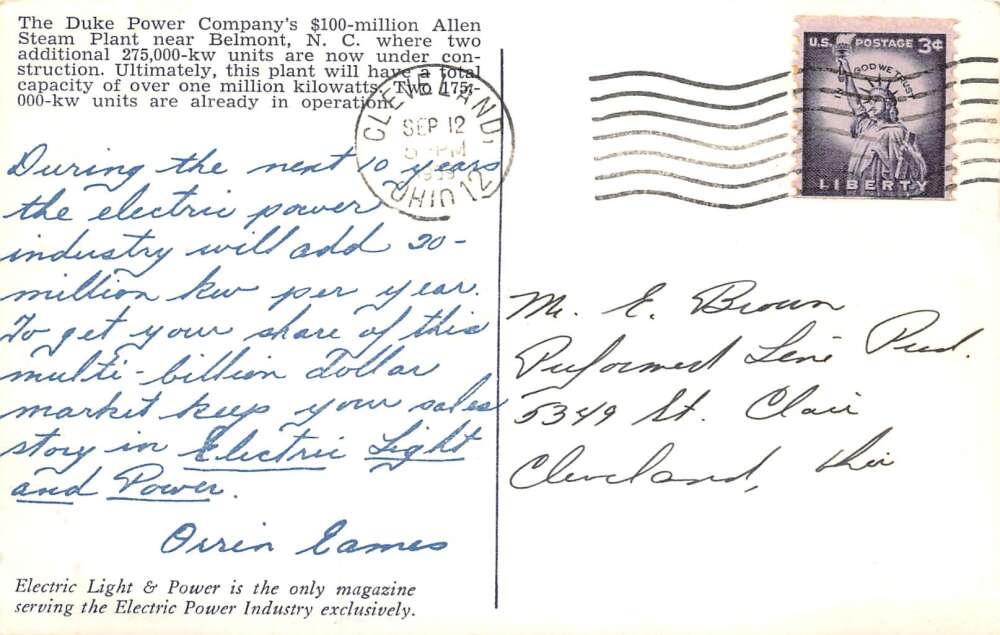 The Duke Power Company's $100-million Allen
Steam Plant near Belmont, N. C. where two
additional 275,000-kw units are now under con-
struction. Ultimately, this plant will have a total
capacity of over one million kilowatts. Two 175,-
000-kw units are already in operation.
CLEVELAND,
SEP 12
PM
1959
OHIO 12
U.S. POSTAGE 3¢
IN GOD WE TRUST
LIBERTY
During the next 10 years
the electric power
industry will add 20-
million kw per year.
To get your share of this
multi-billion dollar
market keep your sales
story in Electric Light
and Power.
Orrin Eames
Mr. E. Brown
Preformed Line Prod.
5349 St. Clair
Cleveland, Ohio
Electric Light & Power is the only magazine
serving the Electric Power Industry exclusively.